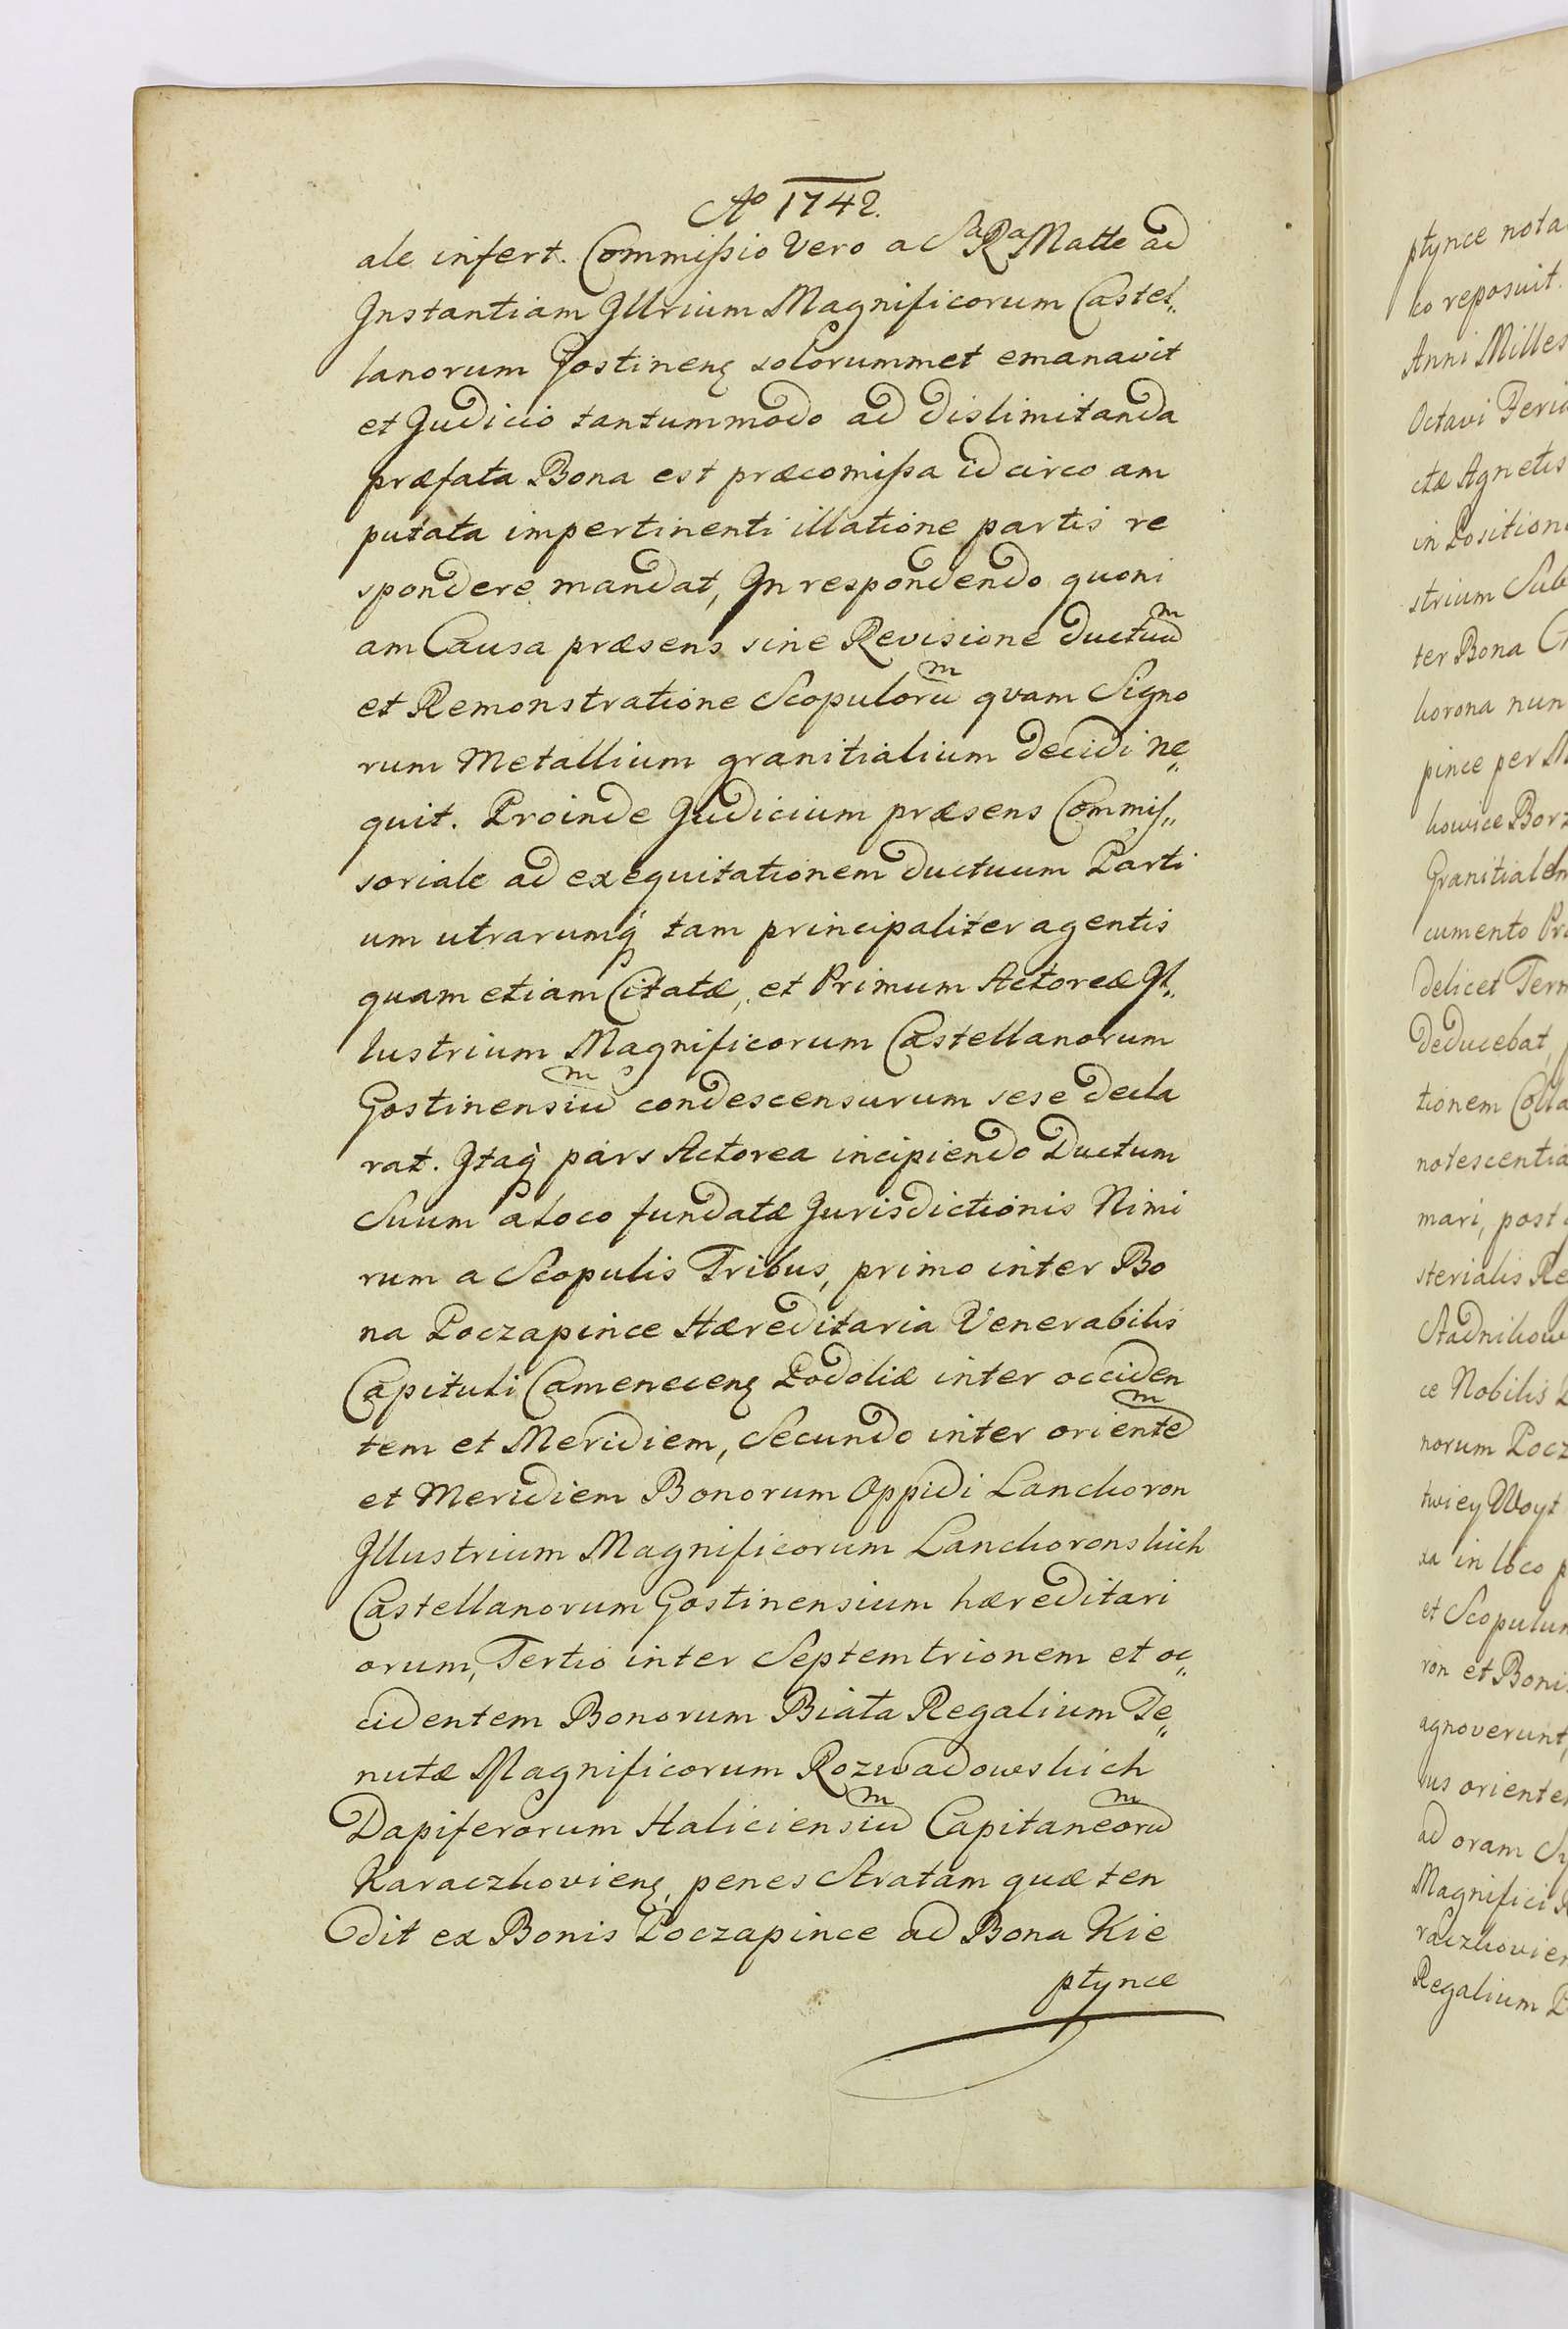 Ao 1742.
ale infert. Commissio Vero a Sa Ra Matte ad
Instantiam Illrium Magnificorum Castel„
lanorum Gostinens solorummet emanavit
et Judicio tantummodo ad dislimitanda
præfata Bona est præcomissa idcirco am
putata impertinenti illatione partis re
spondere mandat, In respondendo quoni
am Causa præsens sine Revisione ductuum
et Remonstratione Scopulorum qvam Signo
rum Metallium granitialium decidi ne„
quit. Proinde Judicium præsens Commis„
soriale ad exequitationem ductuum Parti
um utrarumq tam principaliter agentis
quam etiam Citatæ, et Primum Actoreæ Il„
lustrium Magnificorum Castellanorum
Gostinensium condescensurum sese decla
rat. Itaq pars Actorea incipiendo Ductum
Suum a loco fundatæ Jurisdictionis Nimi
rum a Scopulis Tribus, primo inter Bo
na Poczapince Hæreditaria Venerabilis
Capituli Camenecens Podoliæ inter occiden
tem et Meridiem, Secundo inter orientem
et Meridiem Bonorum Oppidi Lanckoron
Illustrium Magnificorum Lanckoronskich
Castellanorum Gostinensium hæreditari
orum, Tertio inter Septemtrionem et oc„
cidentem Bonorum Biała Regalium Te„
nutæ Magnificorum Rozwadowskich
Dapiferorum Haliciensium Capitaneorum
Karaczkoviens, penes Stratam quæ ten
dit ex Bonis Poczapince ad Bona Kie
ptynce
ptynce nota
co reposuit.
Anni Milles
Octavi Feria
ctæ Agnetis
in Position
strium Sub
ter Bona
korona nun
pince per M
kowice Borz
Granitialem
cumento Pr
delicet Term
deducebat,
tionem Colla
notescentia
mari, post
sterialis Re
Stadnikow
ce Nobilis
norum Pocz
twiey Woyt
xa in loco p
et Scopulum
ron et Boni
agnoverunt,
sus oriente
ad oram
Magnifici R
raczkovien
Regalium